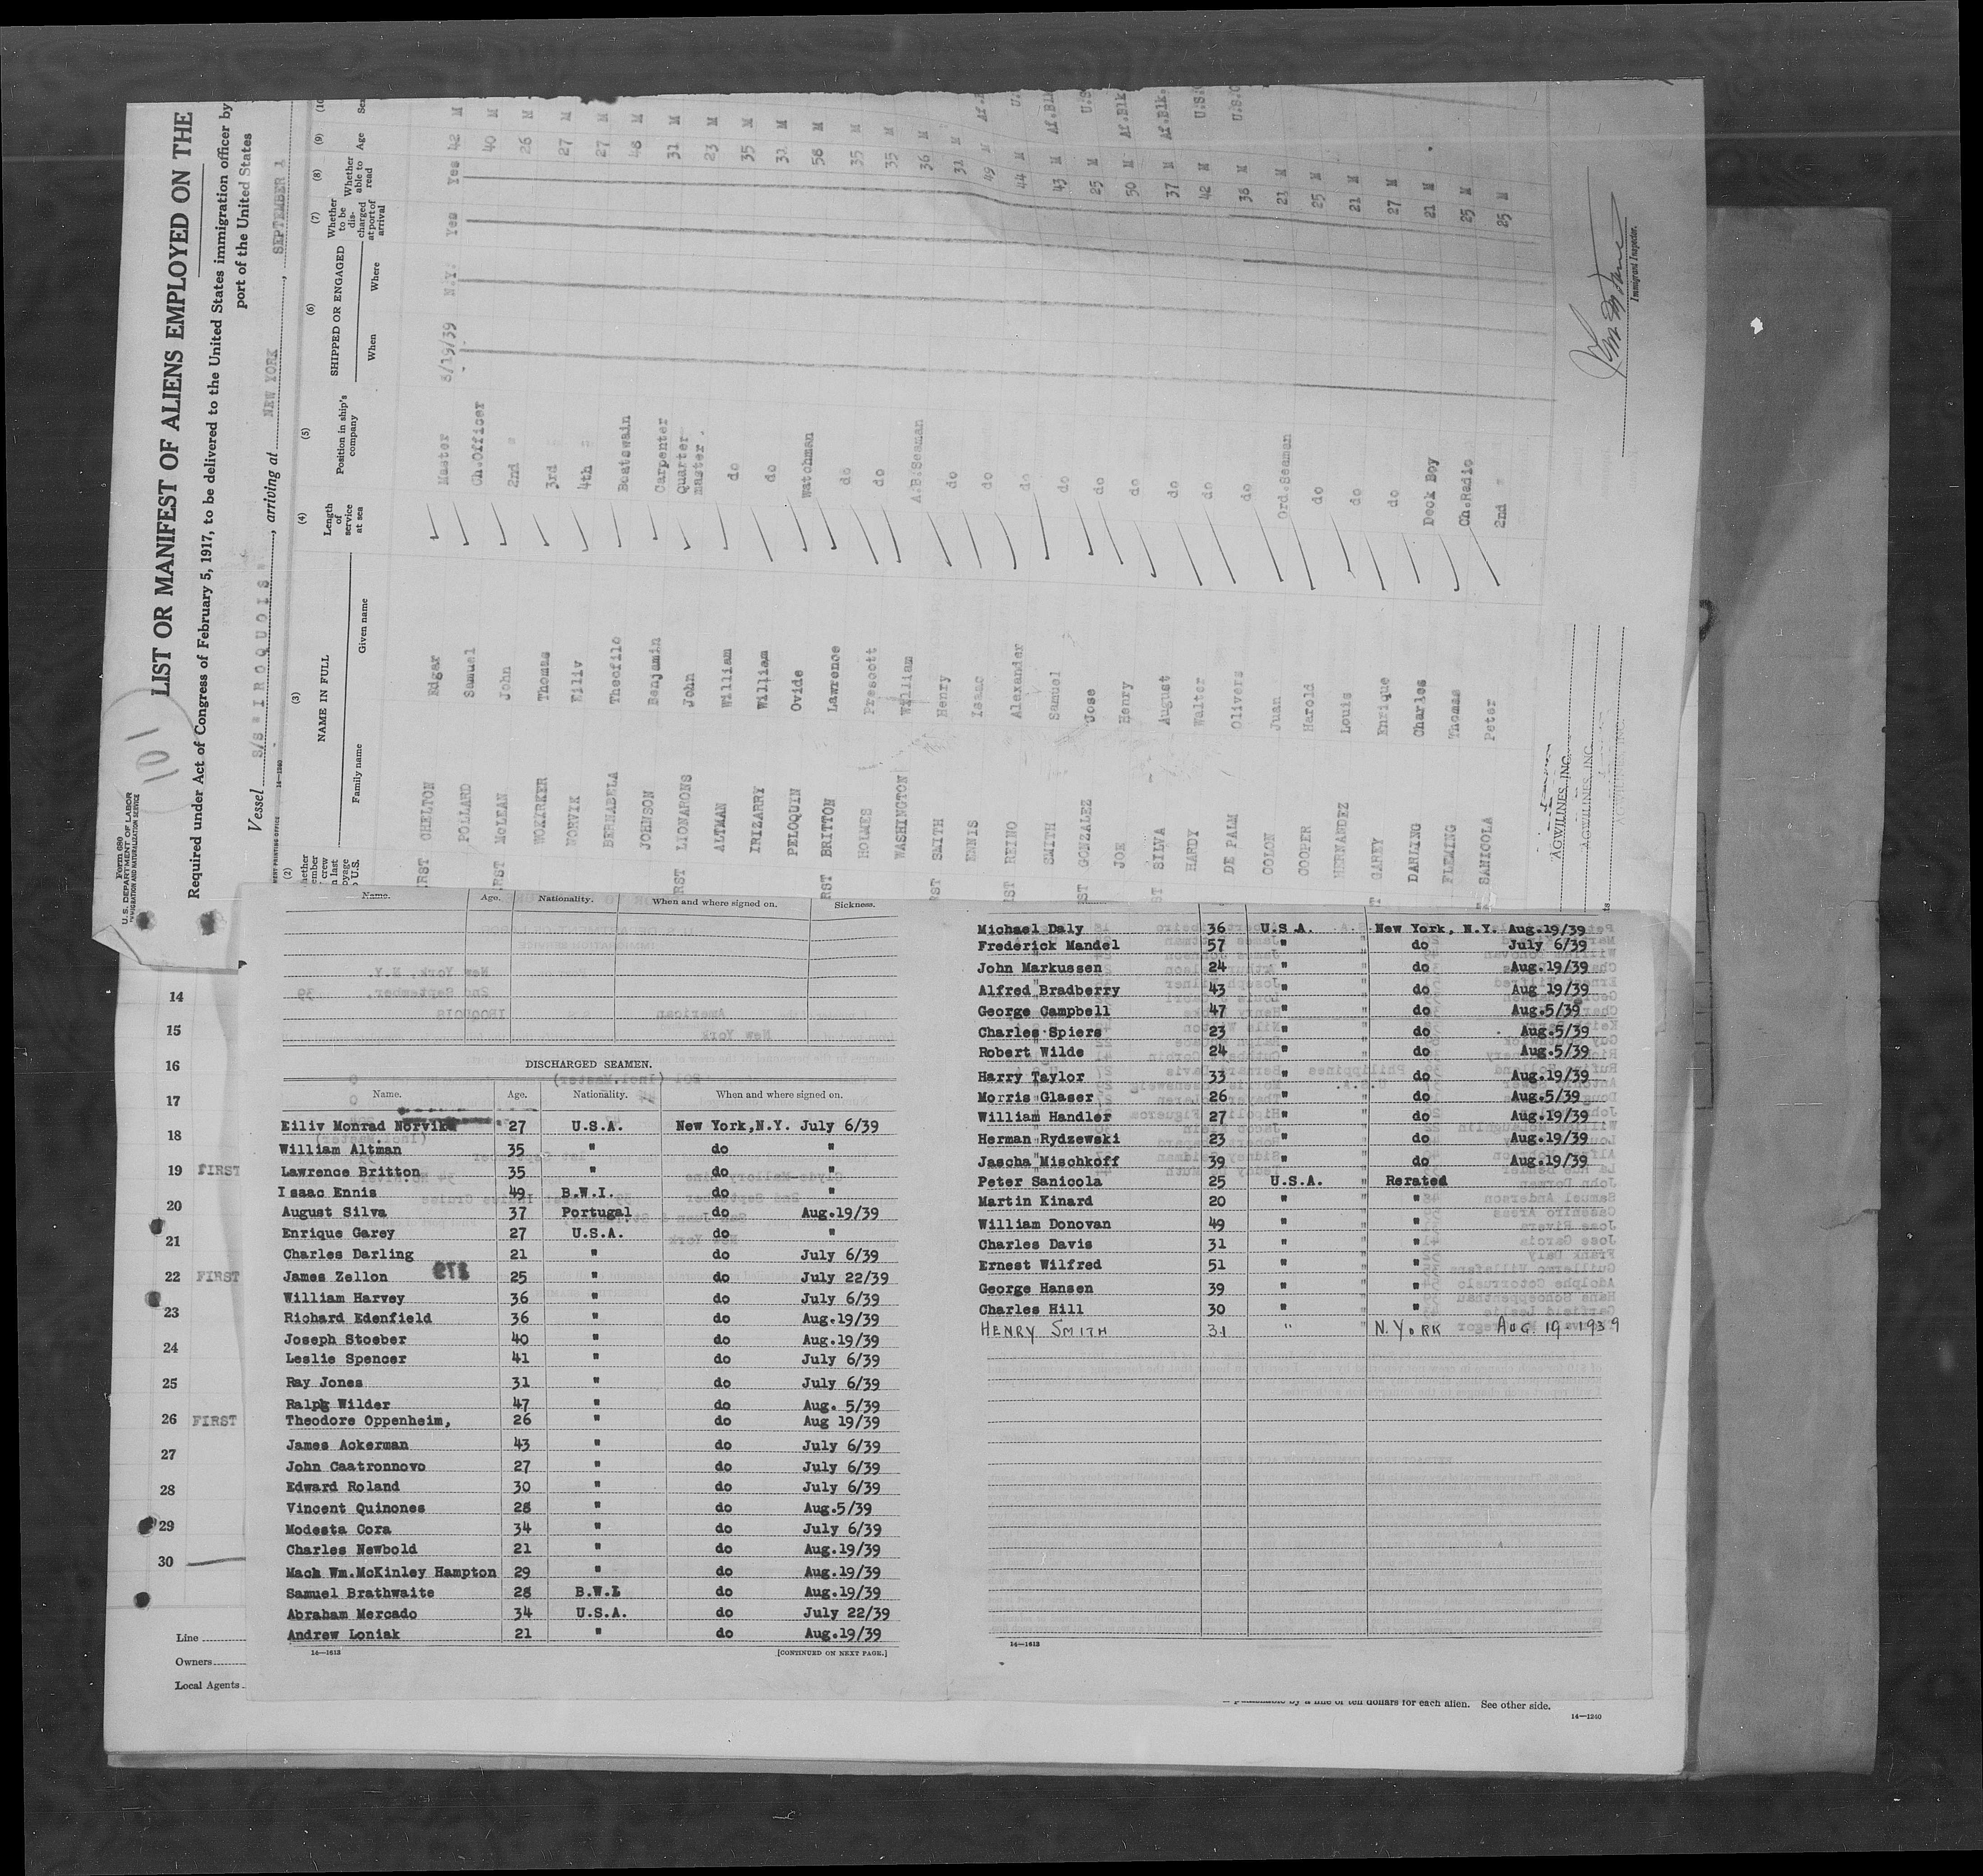 Form 680
U. S. DEPARTMENT OF LABOR
IMMIGRATION AND NATURALIZATION SERVICE
101
LIST OR MANIFEST OF ALIENS EMPLOYED ON THE
Required under Act of Congress of February 5, 1917, to be delivered to the United States immigration officer by
port of the United States
Vessel S/S "IROQUOIS", arriving at NEW YORK, SEPTEMBER 1
(2) (3) (4) (5) (6) (7) (8) (9)
NAME IN FULL Length of service at sea Position in ship's company SHIPPED OR ENGAGED Whether to be discharged at port of arrival Whether able to read Age
Family name Given name When Where
CHELTON Edgar Master 8/19/39 N.Y. Yes Yes 42 M
POLLARD Samuel Ch.Officer 40 M
McLEAN John 2nd " 26 M
WOXIRKER Thomas 3rd " 27 M
NORVIK Eiliv 4th " 27 M
BERNABELA Theofilo Boatswain 48 M
JOHNSON Benjamin Carpenter 31 M
LIONARONS John Quarter master 23 M
ALTMAN William do 35 M
IRIZARRY William do 31 M
PELOQUIN Ovide Watchman 58 M
BRITTON Lawrence do 35 M
HOLMES Prescott do 35 M
WASHINGTON William A.B.Seaman 36 M
SMITH Henry do 31 M
ENNIS Isaac do 49 M
REINO Alexander do 44 M
SMITH Samuel do 43 M
GONZALEZ Jose do 25 M
JOE Henry do 50 M
SILVA August do 37 M
HARDY Walter do 42 M
DE PALM Olivers do 36 M
COLON Juan Ord.Seaman 21 M
COOPER Harold do 25 M
HERNANDEZ Louis do 21 M
GAREY Enrique do 27 M
DARLING Charles Deck Boy 21 M
FLEMING Thomas Ch.Radio 25 M
SANICOLA Peter 2nd " 25 M
AGWILINES, INC.
AGWILINES, INC.
Immigrant Inspector.
14
15
16
17
18
19 FIRST
20
21
22 FIRST
23
24
25
26 FIRST
27
28
29
30
Line
Owners
Local Agents
Name. Age. Nationality. When and where signed on. Sickness.
DISCHARGED SEAMEN.
Name. Age. Nationality. When and where signed on.
Eiliv Monrad Norvik 27 U.S.A. New York,N.Y. July 6/39
William Altman 35 " do "
Lawrence Britton 35 " do "
Isaac Ennis 49 B.W.I. do "
August Silva 37 Portugal do Aug.19/39
Enrique Garey 27 U.S.A. do "
Charles Darling 21 " do July 6/39
James Zellon 25 " do July 22/39
William Harvey 36 " do July 6/39
Richard Edenfield 36 " do Aug.19/39
Joseph Stoeber 40 " do Aug.19/39
Leslie Spencer 41 " do July 6/39
Ray Jones 31 " do July 6/39
Ralpg Wilder 47 " do Aug. 5/39
Theodore Oppenheim, 26 " do Aug 19/39
James Ackerman 43 " do July 6/39
John Caatronnovo 27 " do July 6/39
Edward Roland 30 " do July 6/39
Vincent Quinones 28 " do Aug.5/39
Modesta Cora 34 " do July 6/39
Charles Newbold 21 " do Aug.19/39
Mack Wm.McKinley Hampton 29 " do Aug.19/39
Samuel Brathwaite 28 B.W.I. do Aug.19/39
Abraham Mercado 34 U.S.A. do July 22/39
Andrew Loniak 21 " do Aug.19/39
14—1613 [CONTINUED ON NEXT PAGE.]
Michael Daly 36 U.S.A. New York, N.Y. Aug.19/39
Frederick Mandel 57 " do July 6/39
John Markussen 24 " do Aug.19/39
Alfred Bradberry 43 " do Aug 19/39
George Campbell 47 " do Aug.5/39
Charles Spiers 23 " do Aug.5/39
Robert Wilde 24 " do Aug.5/39
Harry Taylor 33 " do Aug.19/39
Morris Glaser 26 " do Aug.5/39
William Handler 27 " do Aug.19/39
Herman Rydzewski 23 " do Aug.19/39
Jascha Mischkoff 39 " do Aug.19/39
Peter Sanicola 25 U.S.A. " Rerated
Martin Kinard 20 " "
William Donovan 49 " "
Charles Davis 31 " "
Ernest Wilfred 51 " "
George Hansen 39 " "
Charles Hill 30 " "
HENRY SMITH 31 " N.YORK AUG. 19-1939
14—1613
by a fine of ten dollars for each alien. See other side.
14—1240